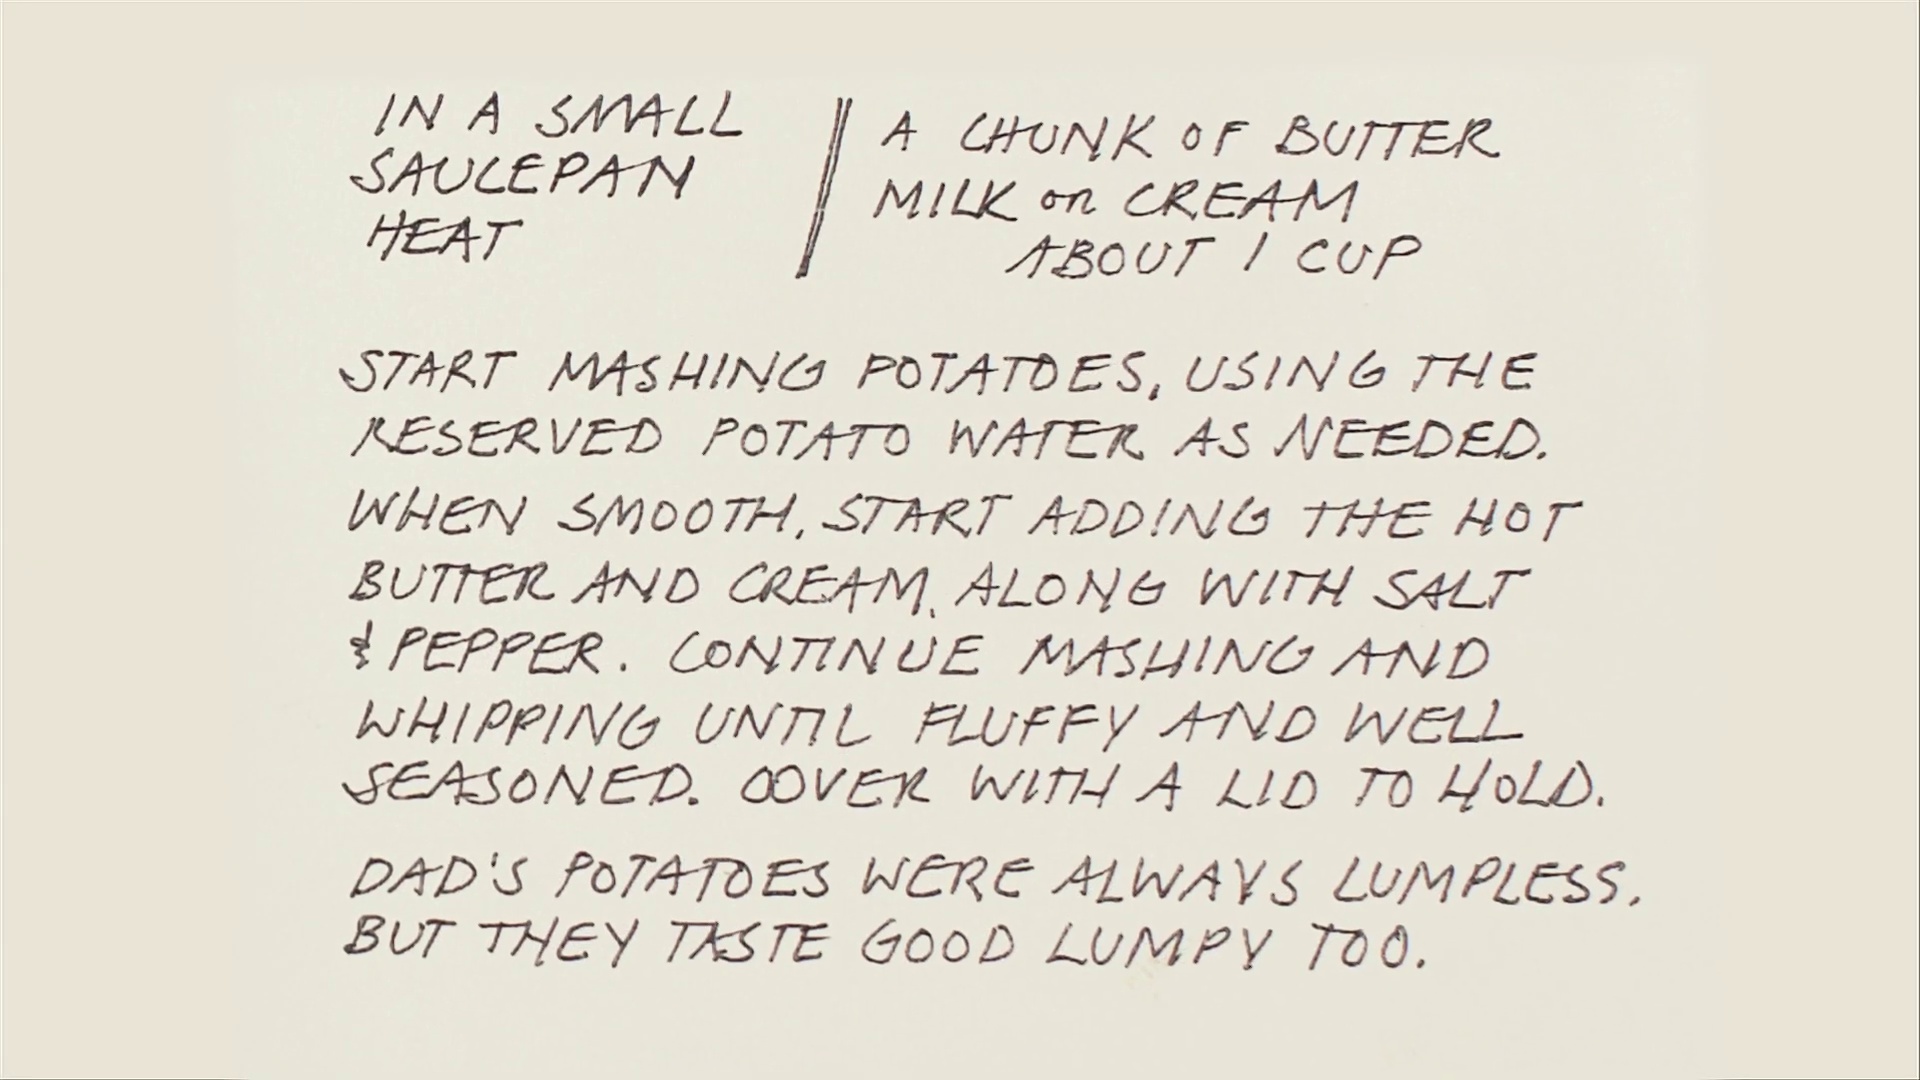 IN A SMALL
SAUCEPAN
HEAT
A CHUNK OF BUTTER
MILK or CREAM
ABOUT 1 CUP
START MASHING POTATOES, USING THE
RESERVED POTATO WATER AS NEEDED.
WHEN SMOOTH, START ADDING THE HOT
BUTTER AND CREAM, ALONG WITH SALT
& PEPPER. CONTINUE MASHING AND
WHIPPING UNTIL FLUFFY AND WELL
SEASONED. COVER WITH A LID TO HOLD.
DAD'S POTATOES WERE ALWAYS LUMPLESS.
BUT THEY TASTE GOOD LUMPY TOO.